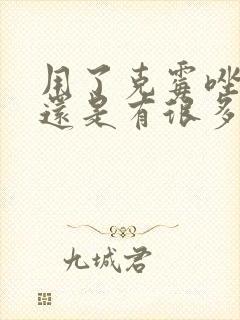 用了克霉唑
還是有很多
九城君